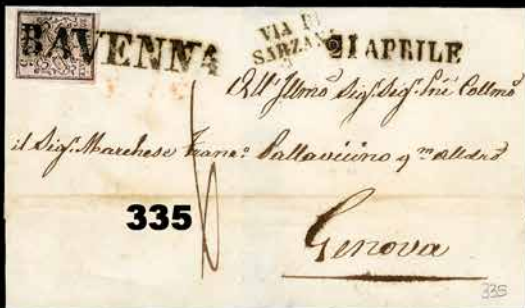 RAVENNA
VIA DI
SARZANA
21 APRILE
All' Illmo Sigr. Sigr. Pne Collmo
il Sigr. Marchese Franco: Pallavicino qm Aless
335
Genova
335